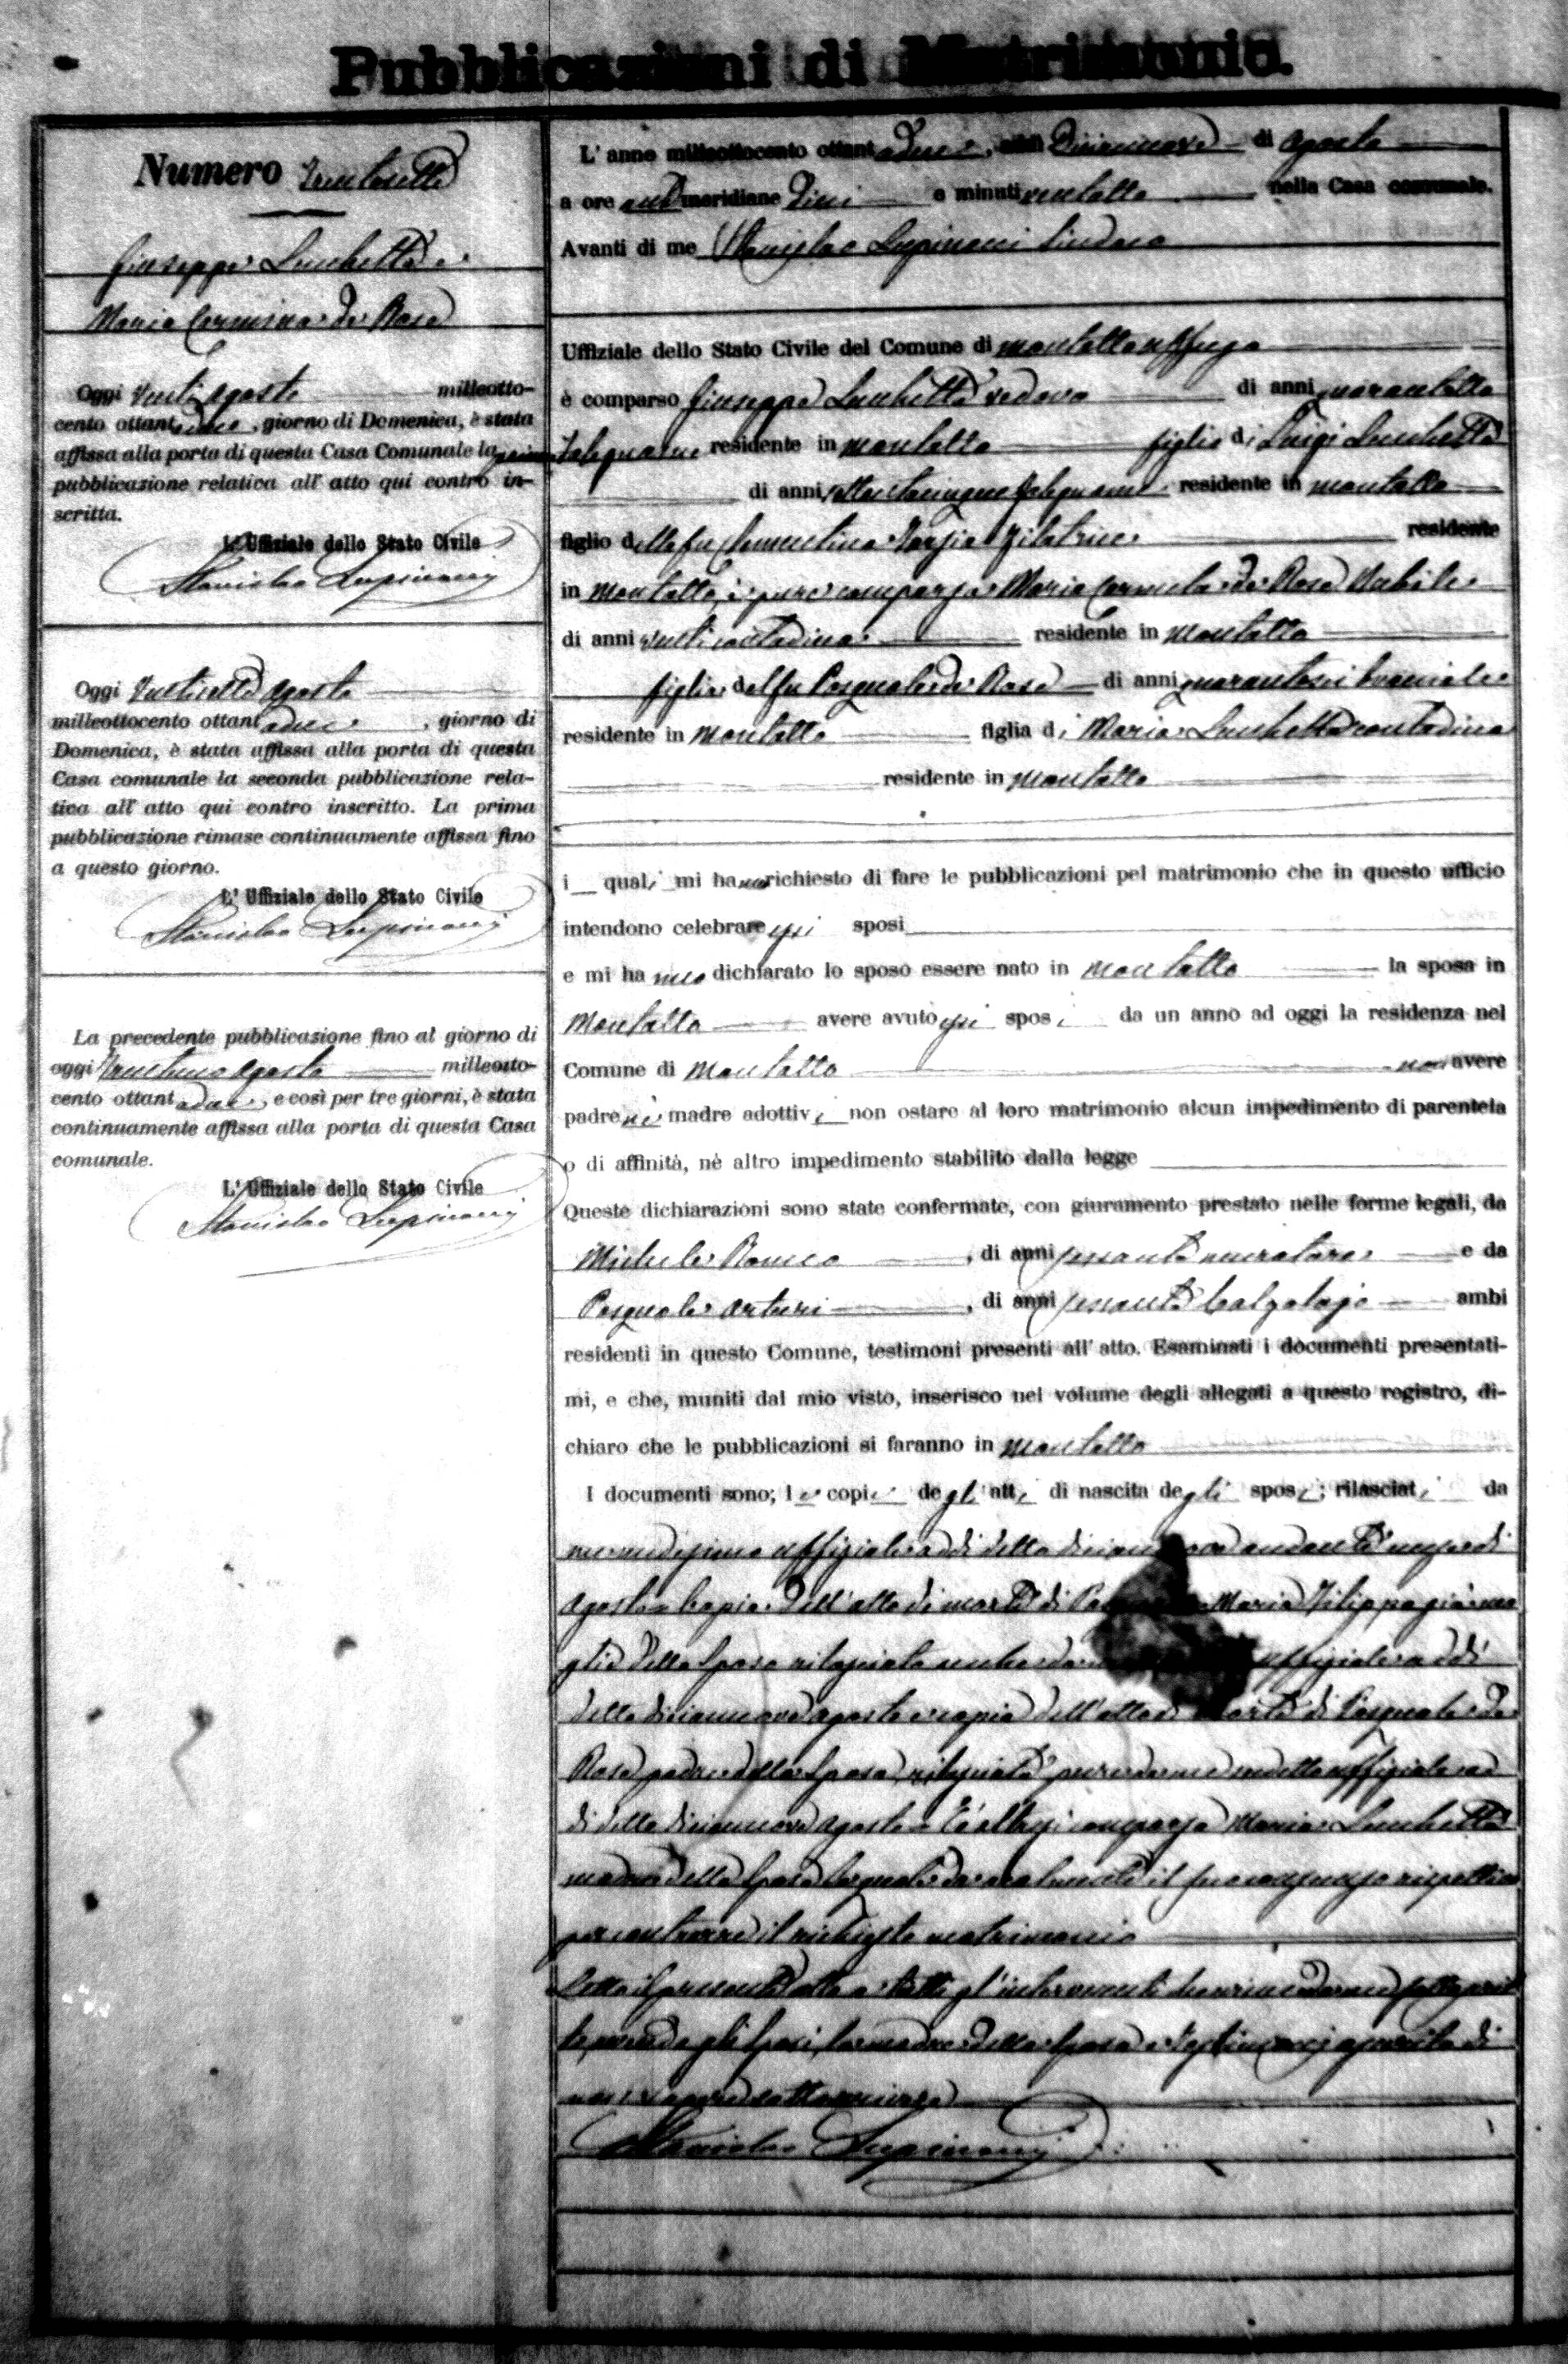 Pubblicazioni di Matrimonio.
Numero Trentasette
Giuseppe Lucchetta e
Maria Carmina de Rose
Oggi Venti Agosto milleotto-
cento ottantadue, giorno di Domenica, è stata
affissa alla porta di questa Casa Comunale la prima
pubblicazione relativa all' atto qui contro in-
scritta.
L' Uffiziale dello Stato Civile
Stanislao Lupinacci
Oggi Ventisette Agosto
milleottocento ottantadue, giorno di
Domenica, è stata affissa alla porta di questa
Casa comunale la seconda pubblicazione rela-
tiva all' atto qui contro inscritto. La prima
pubblicazione rimase continuamente affissa fino
a questo giorno.
L' Uffiziale dello Stato Civile
Stanislao Lupinacci
La precedente pubblicazione fino al giorno di
oggi Trentuno Agosto milleotto-
cento ottantadue, e così per tre giorni, è stata
continuamente affissa alla porta di questa Casa
comunale.
L' Uffiziale dello Stato Civile
Stanislao Lupinacci
L' anno milleottocento ottantadue, addì Diciannove di Agosto
a ore antimeridiane Dieci e minuti ventotto nella Casa comunale.
Avanti di me Stanislao Lupinacci Sindaco
Uffiziale dello Stato Civile del Comune di Montalto Uffugo
è comparso Giuseppe Lucchetta vedovo di anni quarantotto
Falegname residente in Montalto figlio di Luigi Lucchetta
di anni settantacinque falegname residente in Montalto
figlio della fu Clementina filatrice residente
in Montalto, è pure comparsa Maria Carmela de Rose Nubile
di anni venti contadina residente in Montalto
figlia del fu Pasquale de Rose di anni quarantasei bracciale
residente in Montalto figlia di Maria Lucchetta contadina
residente in Montalto
i quali mi hanno richiesto di fare le pubblicazioni pel matrimonio che in questo ufficio
intendono celebrare essi sposi
e mi hanno dichiarato lo sposo essere nato in Montalto la sposa in
Montalto avere avuto essi sposi da un anno ad oggi la residenza nel
Comune di Montalto non avere
padre nè madre adottivi non ostare al loro matrimonio alcun impedimento di parentela
o di affinità, nè altro impedimento stabilito dalla legge
Queste dichiarazioni sono state confermate, con giuramento prestato nelle forme legali, da
Michele Romeo, di anni sessanta muratore e da
Pasquale Arturi, di anni sessanta Calzolajo ambi
residenti in questo Comune, testimoni presenti all' atto. Esaminati i documenti presentati-
mi, e che, muniti dal mio visto, inserisco nel volume degli allegati a questo registro, di-
chiaro che le pubblicazioni si faranno in Montalto
I documenti sono; le copie degli atti di nascita degli sposi; rilasciati da
me medesimo uffiziale addì detto diciannove andante mese di
Agosto Copia dell'atto di morte di Maria Filippa già mo
glie dello Sposo rilasciata anche da uffiziale addì
detto diciannove Agosto e copia dell'atto di morte di Pasquale de
Rose padre della Sposa, rilasciata pure da me uffiziale ad
dì detto diciannove Agosto. È altresì comparsa Maria Lucchetta
madre della Sposa la quale dà il suo consenso rispettivo
per contrarre il richiesto matrimonio
Letto il presente atto a tutti gl'intervenuti
avendo gli Sposi, la madre della Sposa e testimoni asserito di
non sapere sottoscrivere
Stanislao Lupinacci